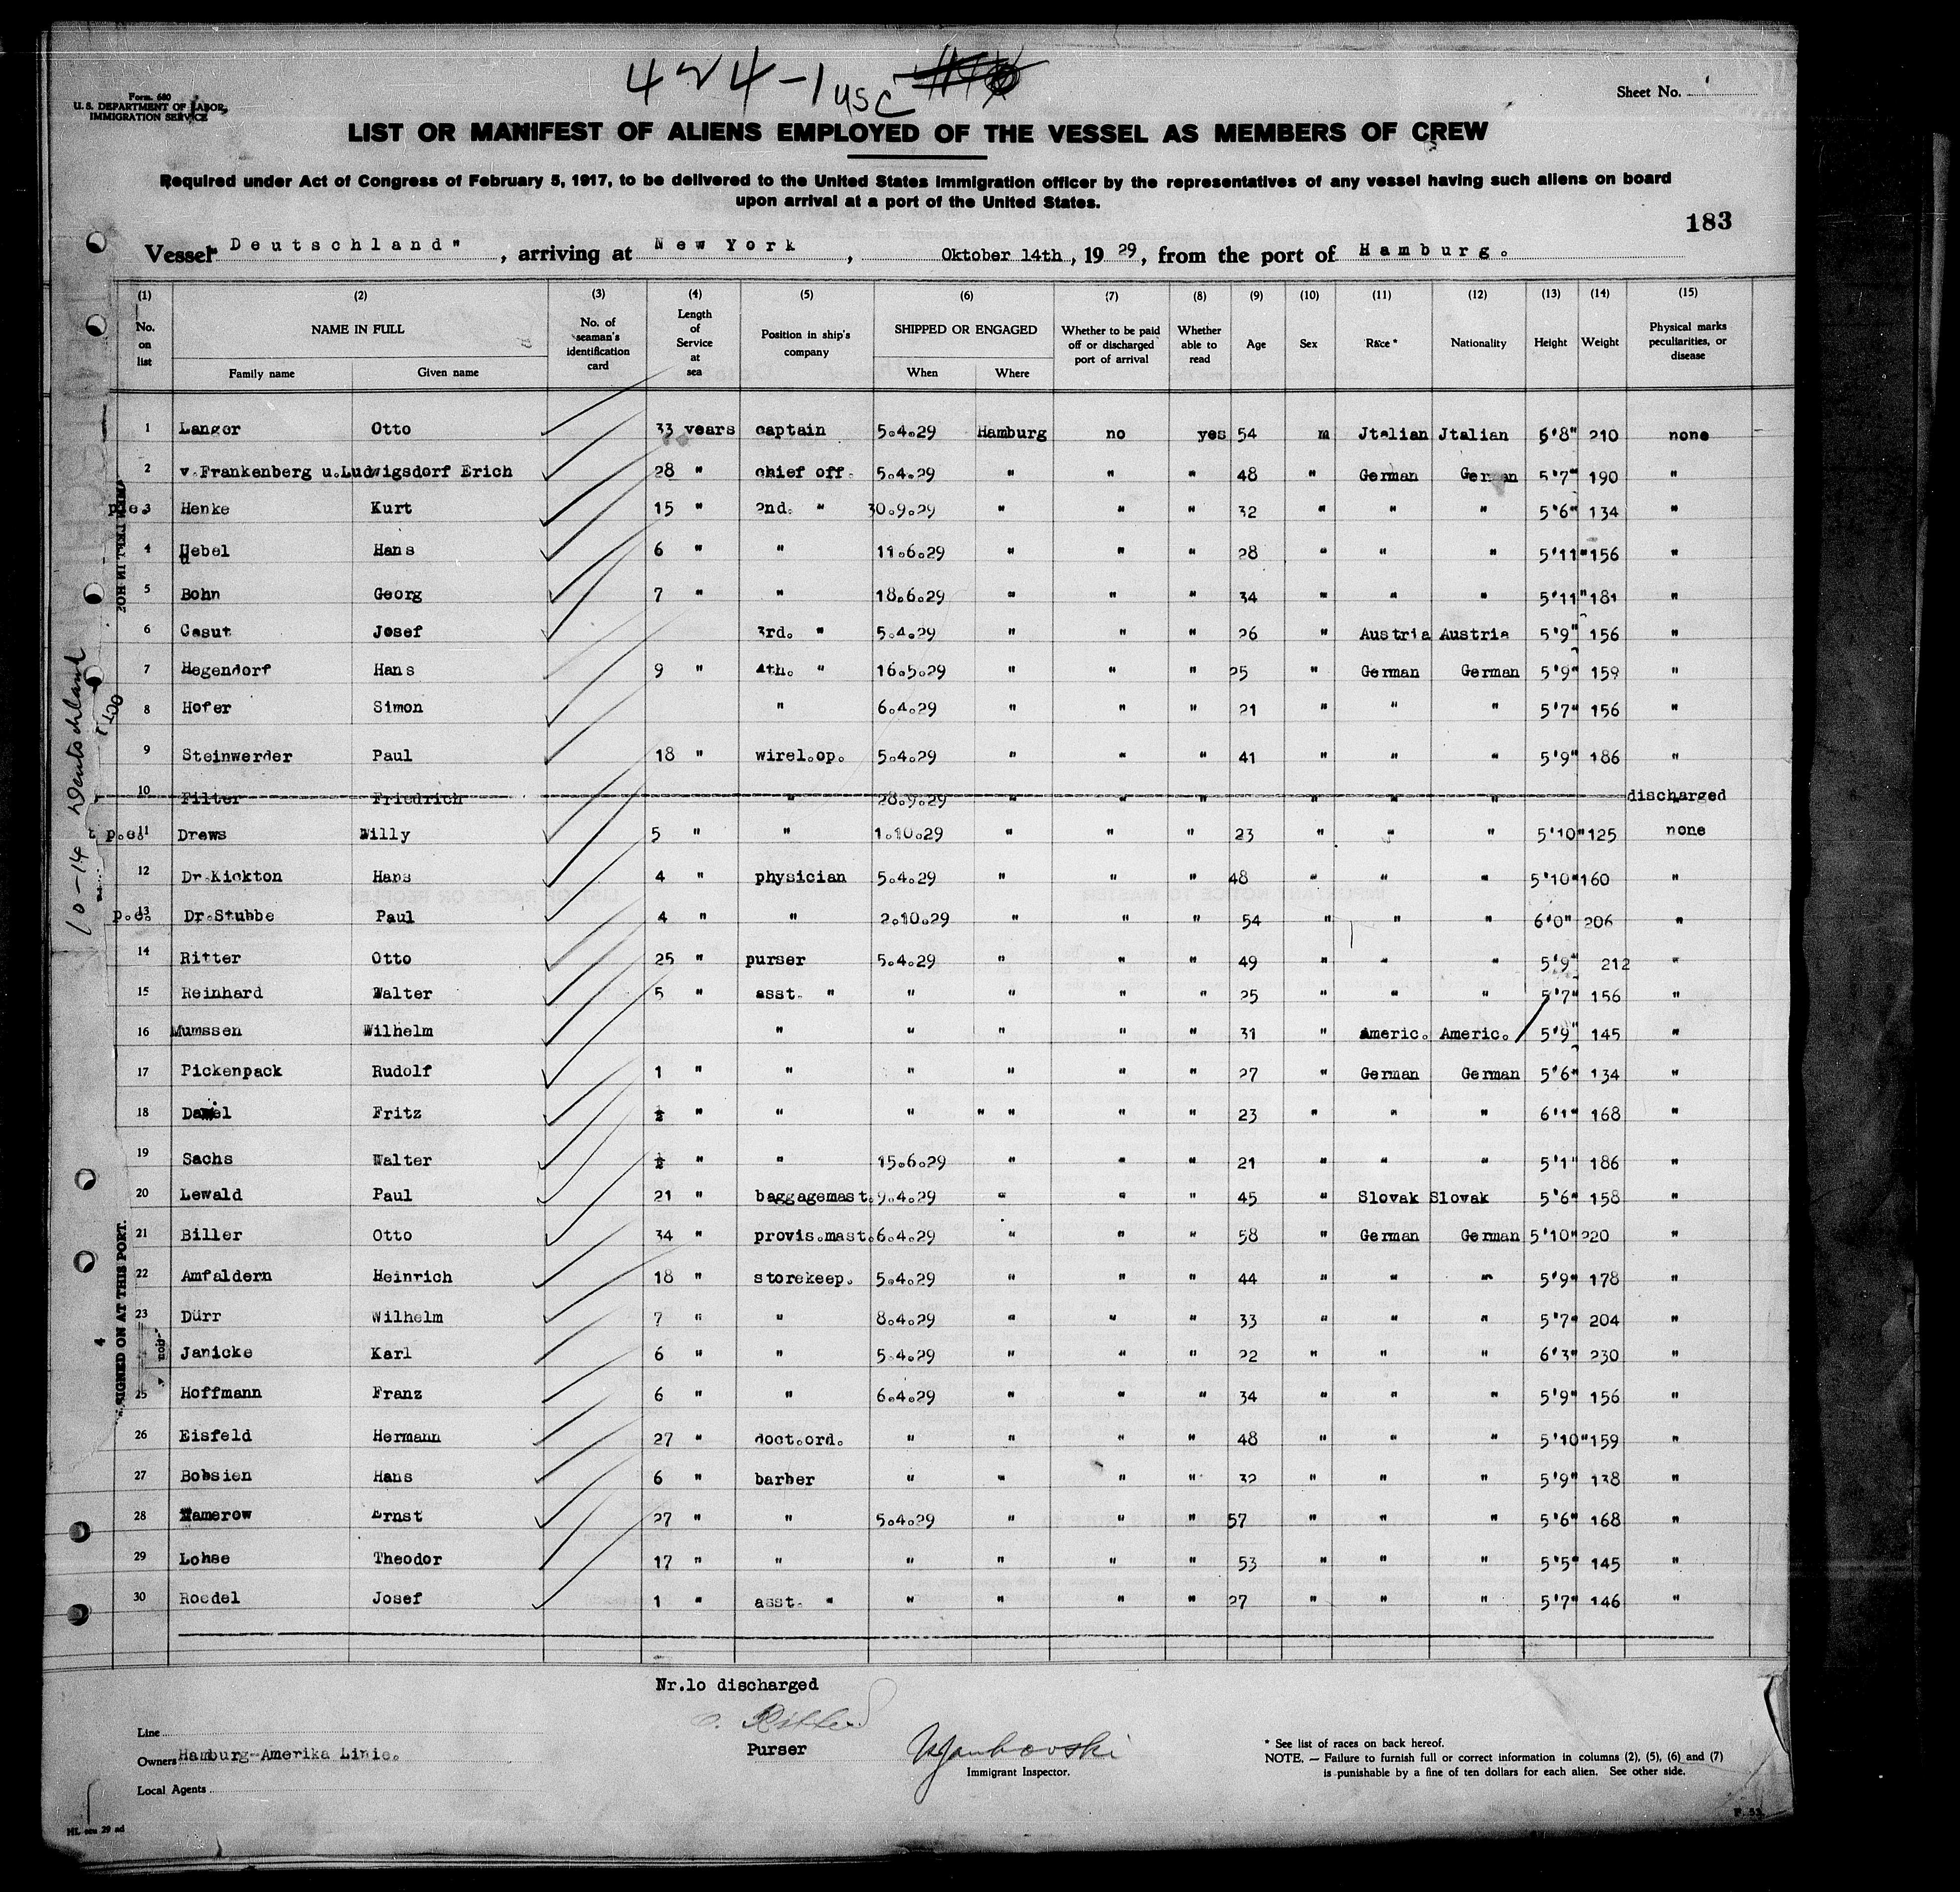 424-1 USC
Form. 680
U. S. DEPARTMENT OF LABOR,
IMMIGRATION SERVICE
Sheet No.
LIST OR MANIFEST OF ALIENS EMPLOYED OF THE VESSEL AS MEMBERS OF CREW
Required under Act of Congress of February 5, 1917, to be delivered to the United States immigration officer by the representatives of any vessel having such aliens on board
upon arrival at a port of the United States.
183
Vessel " Deutschland ", arriving at New York, Oktober 14th, 19 29, from the port of Hamburg.
(1) (2) (3) (4) (5) (6) (7) (8) (9) (10) (11) (12) (13) (14) (15)
No. on list NAME IN FULL Family name Given name No. of seaman's identification card Length of Service at sea Position in ship's company SHIPPED OR ENGAGED When Where Whether to be paid off or discharged port of arrival Whether able to read Age Sex Race * Nationality Height Weight Physical marks peculiarities, or disease
1 Langer Otto 33 years captain 5.4.29 Hamburg no yes 54 m Jtalian Jtalian 5'8" 210 none
2 v.Frankenberg u.Ludwigsdorf Erich 28 " chief off. 5.4.29 " " " 48 " German German 5'7" 190 "
p.e. 3 Henke Kurt 15 " 2nd. " 30.9.29 " " " 32 " " " 5'6" 134 "
4 Uebel Hans 6 " " 11.6.29 " " " 28 " " " 5'11" 156 "
5 Bohn Georg 7 " " 18.6.29 " " " 34 " " " 5'11" 181 "
6 Casut Josef 3rd. " 5.4.29 " " " 26 " Austria Austria 5'9" 156 "
7 Hegendorf Hans 9 " 4th. " 16.5.29 " " " 25 " German German 5'9" 159 "
8 Hofer Simon " 6.4.29 " " " 21 " " " 5'7" 156 "
9 Steinwerder Paul 18 " wirel.op. 5.4.29 " " " 41 " " " 5'9" 186 "
10 Filter Friedrich " 28.9.29 " " " " " " discharged
p.e. 11 Drews Willy 5 " " 1.10.29 " " " 23 " " " 5'10" 125 none
12 Dr.Kickton Hans 4 " physician 5.4.29 " " " 48 " " " 5'10" 160 "
p.e. 13 Dr.Stubbe Paul 4 " " 2.10.29 " " " 54 " " " 6'0" 206 "
14 Ritter Otto 25 " purser 5.4.29 " " " 49 " " " 5'9" 212 "
15 Reinhard Walter 5 " asst. " " " " " 25 " " " 5'7" 156 "
16 Mumssen Wilhelm " " " " " 31 " Americ. Americ. 5'9" 145 "
17 Pickenpack Rudolf 1 " " " " " " 27 " German German 5'6" 134 "
18 Fritz ½ " " " " " " " 23 " " " 6'1" 168 "
19 Sachs Walter ½ " " 15.6.29 " " " 21 " " " 5'1" 186 "
20 Lewald Paul 21 " baggagemast. 9.4.29 " " " 45 " Slovak Slovak 5'6" 158 "
21 Biller Otto 34 " provis.mast. 6.4.29 " " " 58 " German German 5'10" 220 "
22 Amfaldern Heinrich 18 " storekeep. 5.4.29 " " " 44 " " " 5'9" 178 "
23 Dürr Wilhelm 7 " " 8.4.29 " " " 33 " " " 5'7" 204 "
Janicke Karl 6 " " 5.4.29 " " " 22 " " " 6'3" 230 "
25 Hoffmann Franz 6 " " 6.4.29 " " " 34 " " " 5'9" 156 "
26 Eisfeld Hermann 27 " doct.ord. " " " " 48 " " " 5'10" 159 "
27 Bobsien Hans 6 " barber " " " " 32 " " " 5'9" 138 "
28 Hamerow Ernst 27 " " 5.4.29 " " " 57 " " " 5'6" 168 "
29 Lohse Theodor 17 " " " " " " 53 " " " 5'5" 145 "
30 Roedel Josef 1 " asst. " " " " " 27 " " " 5'7" 146 "
Nr.10 discharged
O. Ritter
Purser
Immigrant Inspector.
Line
Owners Hamburg-Amerika Linie.
Local Agents
* See list of races on back hereof.
NOTE. — Failure to furnish full or correct information in columns (2), (5), (6) and (7)
is punishable by a fine of ten dollars for each alien. See other side.
10-14 Deutschland
OCT
4
SIGNED ON AT THIS PORT.